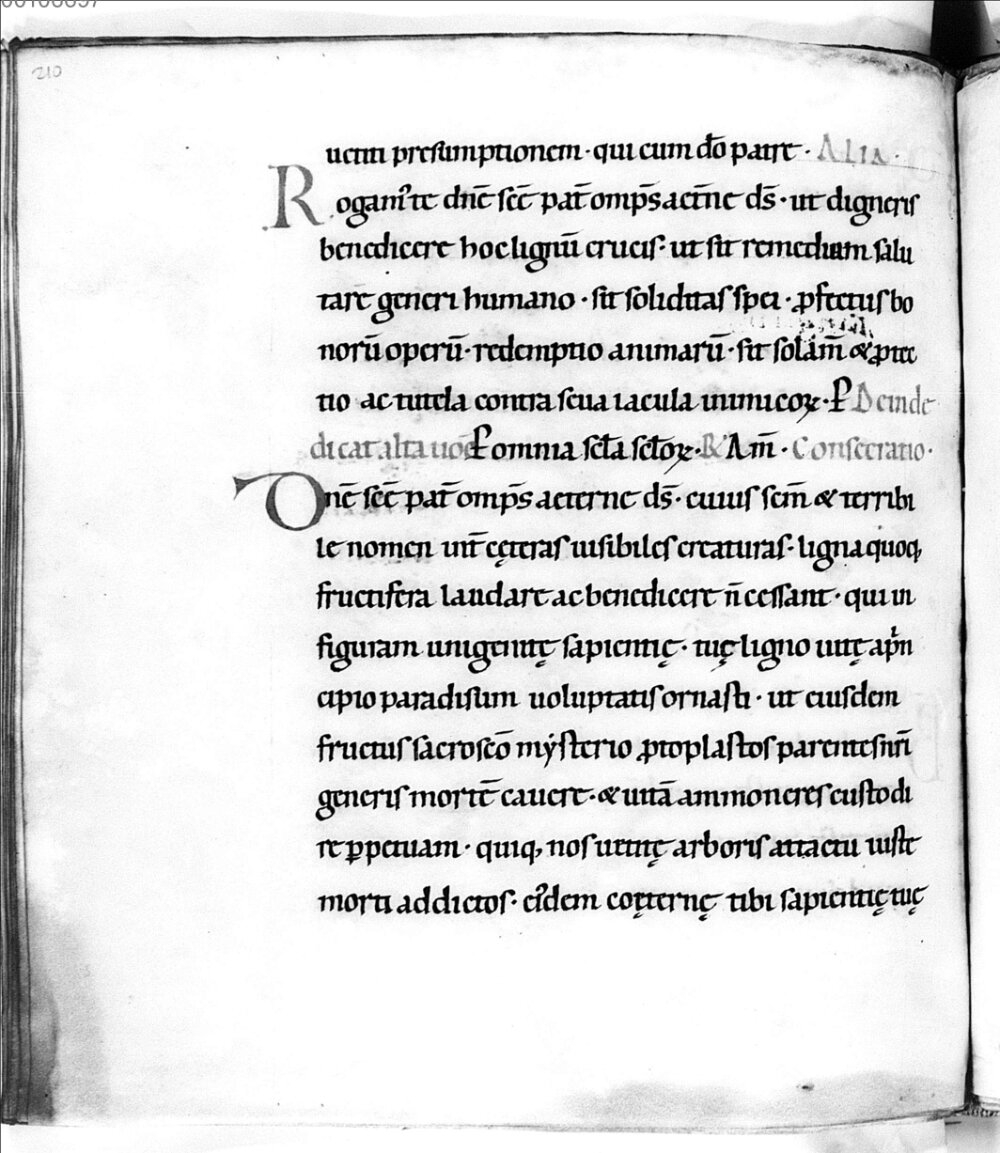 210
uetm presumptionem · qui cum dō patre · ALIA ·
Rogam᷒ te dn̄e sc̄e pat̄ omp̄s aet̄ne ds̄ · ut digneris
benedicere hoc lignū crucis · ut sit remedium salu
tare generi humano · sit soliditas spei · ꝓfectus bo
norū operū · redemptio animarū · sit solam̄ & ꝓtec
tio ac tutela contra seua iacula inimicoꝝ · P̄ Deinde
dicat alta uoce P̄ omnia sc̄la sc̄loꝝ · R̸ Am̄ · Consecratio ·
Dn̄e sc̄e pat̄ omp̄s aeterne ds̄ · cuius sc̄m & terribi
le nomen int̄ cęteras uisibiles creaturas · ligna quoq;
fructifera laudare ac benedicere n̄ cessant · qui in
figuram unigenitę sapientię · tuę ligno uitę a pͥn
cipio paradisum uoluptatis ornasti · ut eiusdem
fructus sacrosc̄o mẏsterio ꝓtoplastos parentes nr̄i
generis mortē cauere · & uitā ammoneres custodi
re ꝑpetuam · quiq; nos uetitę arboris attactu iuste
morti addictos · eiᷤdem coęternę tibi sapientię tuę